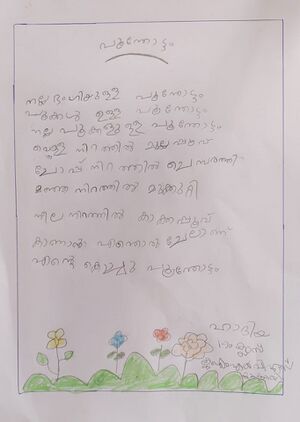 പൂന്തോട്ടം
നല്ല ഭംഗിയുള്ള പൂന്തോട്ടം
പൂക്കൾ ഉള്ള പൂന്തോട്ടം
നല്ല പൂക്കളുള്ള പൂന്തോട്ടം
വെള്ള നിറത്തിൽ മുല്ലപ്പൂവ്
റോസ് നിറത്തിൽ ചെമ്പരത്തി
മഞ്ഞ നിറത്തിൽ മുക്കുറ്റി
നീല നിറത്തിൽ കാക്കപ്പൂവ്
കാണാൻ എന്തൊരു ചേലാണ്
എന്റെ കൊച്ചു പൂന്തോട്ടം
ഹാദിയ
ക്ലാസ്